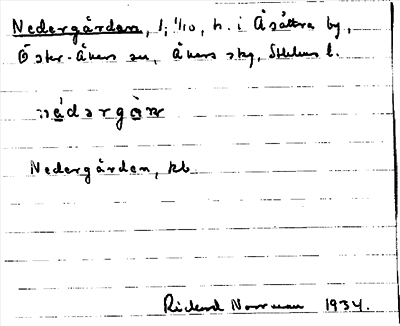 Nedergården, 1, 1/10, h. i Åsättra by,
Öster-Åkers sn, Åkers skg, Sthlms l.
nèdərgòɳ
Nedergården, kb
Rickard Norrman 1934.